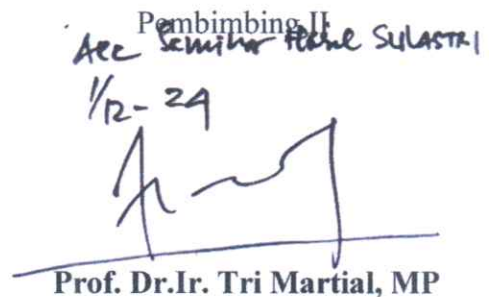 Pembimbing II
Acc Seminar Hasil SULASTRI
1/12-24
Prof. Dr.Ir. Tri Martial, MP